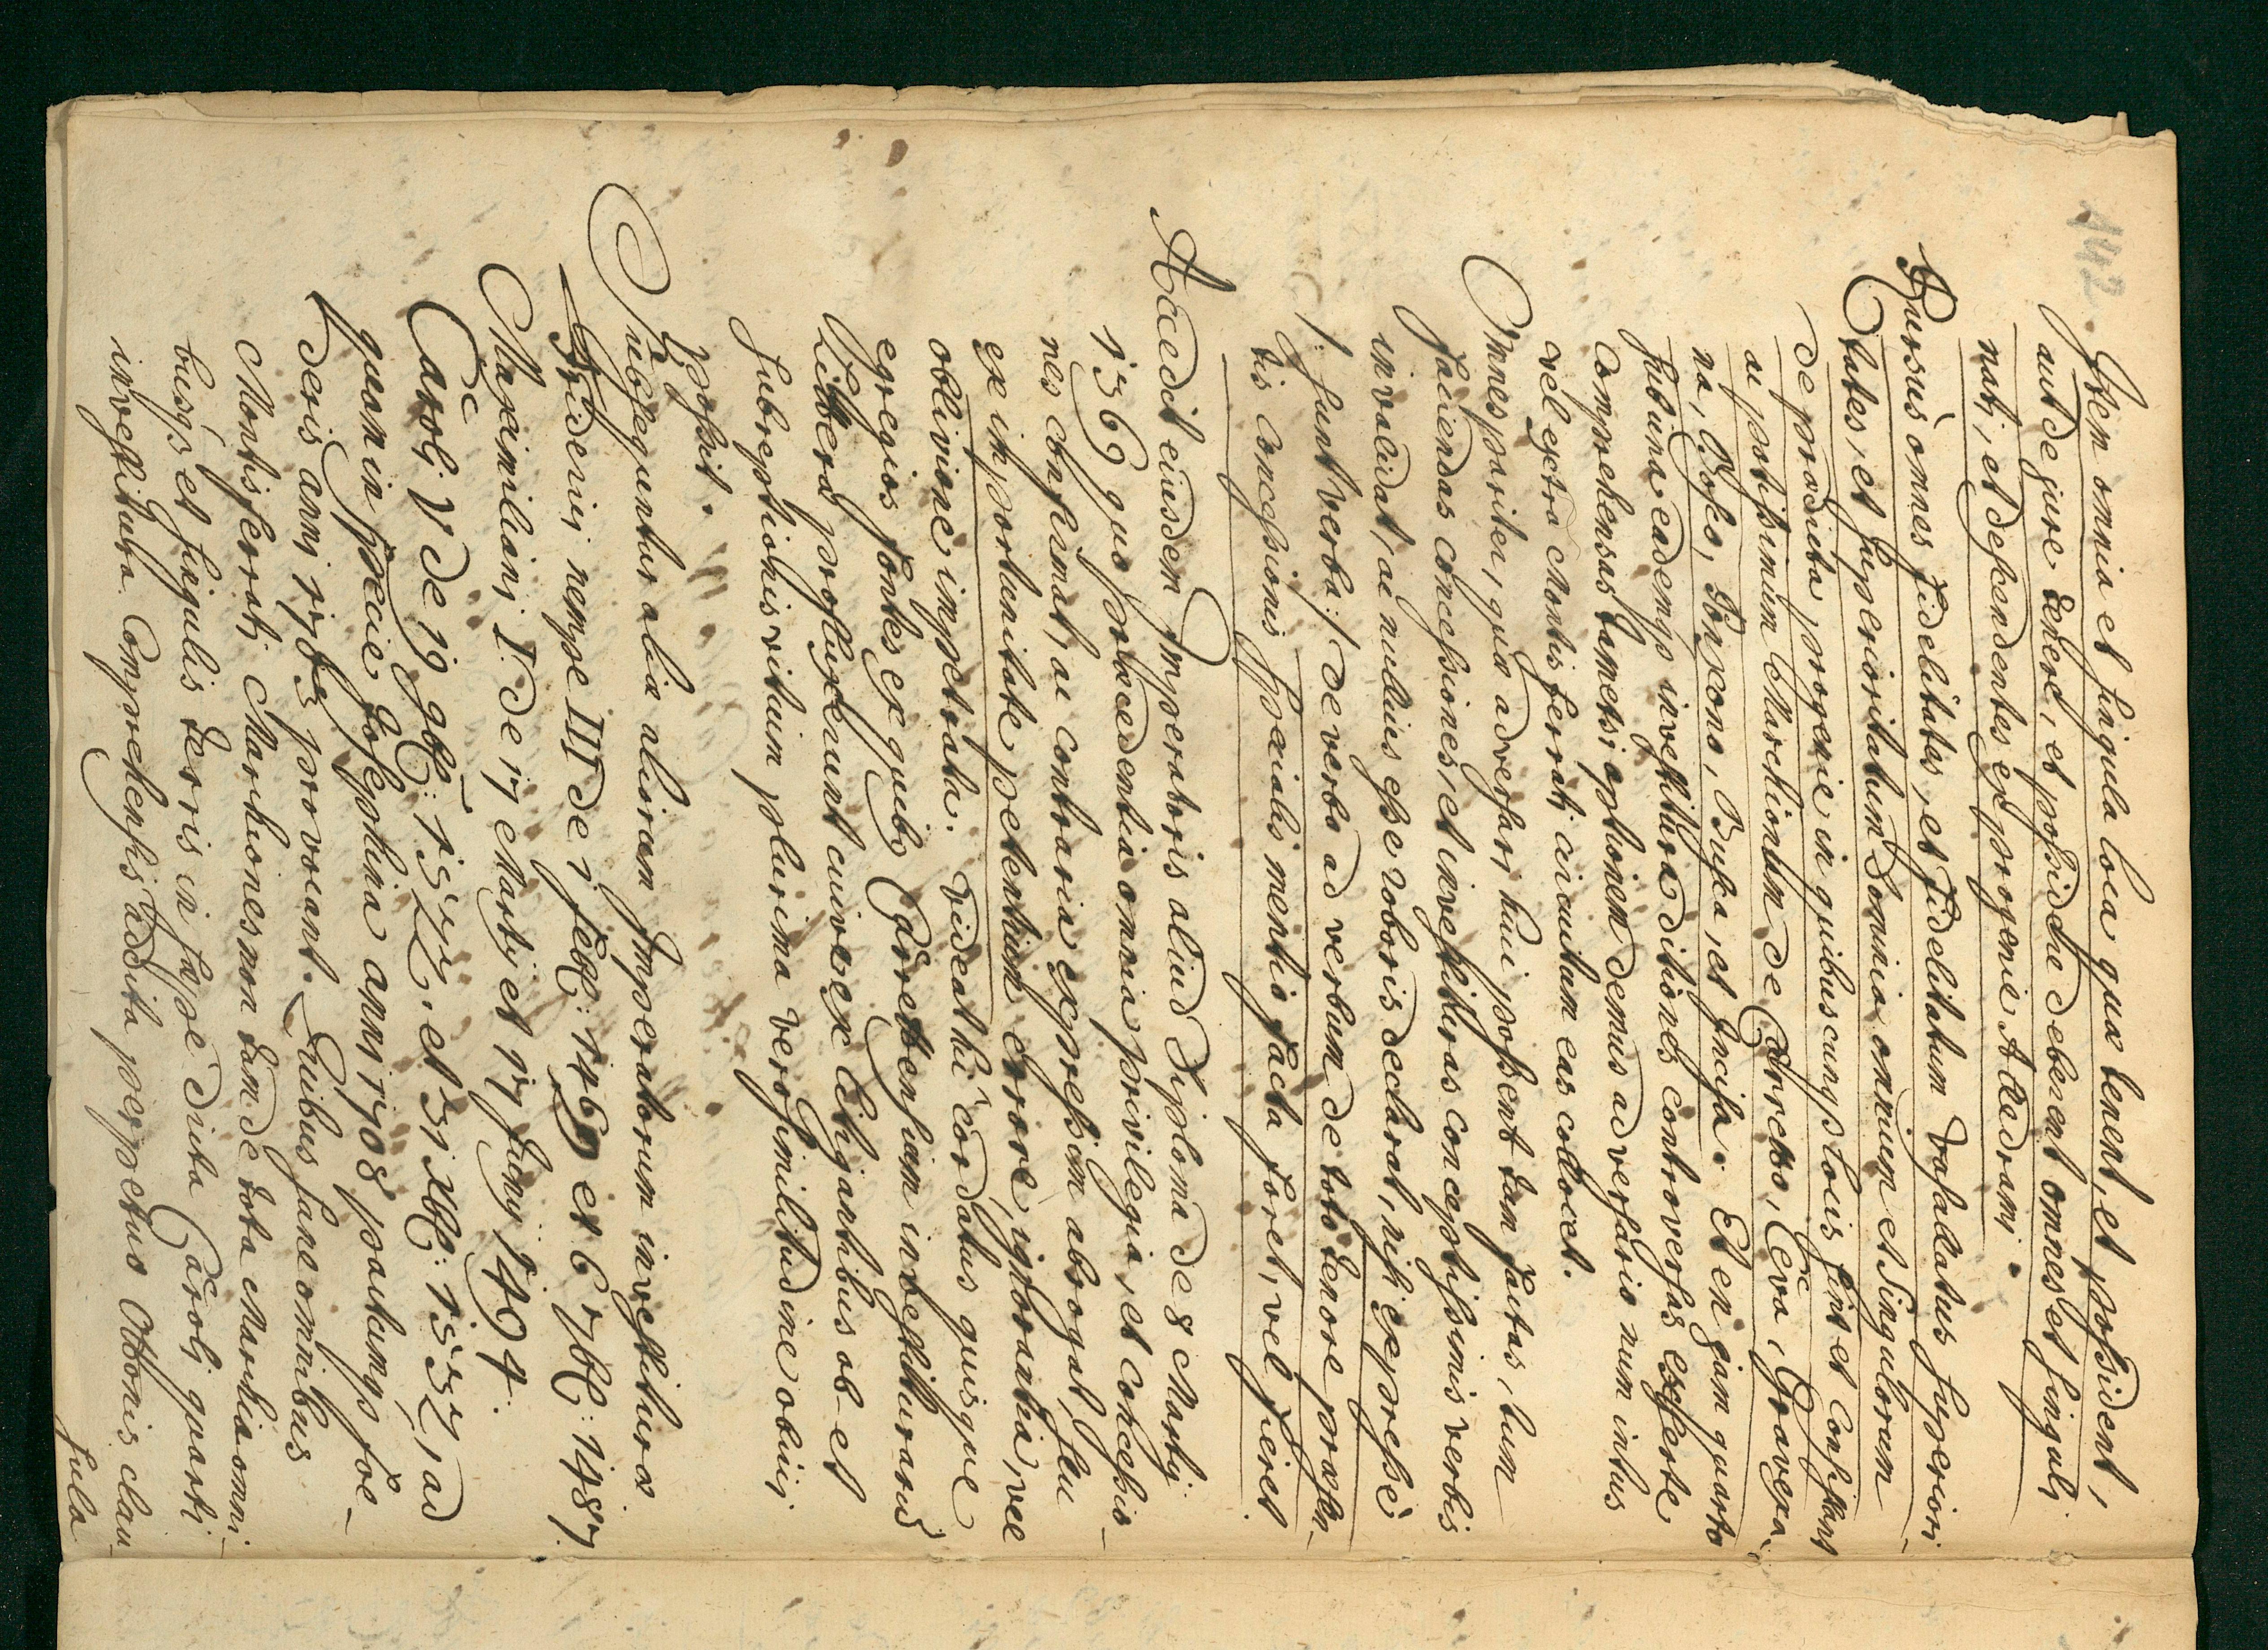 142
Item omnia et singula loca quæ tenent, et possident,
aut de jure tenere, et possidere debent omnes et singuli
nati, et dependentes ex progenie Aledrami.
Rursus omnes fidelitates, et fidelitatum vasalatus superiori-
tates, et superioritatum dominia omnium et singulorum
de prædicta progenie in quibuscunq3 locis sint et consistant
ac potissimum Marchionum de Carretto, Ceva, Gravexa-
na, Bosko, Ponzono, Busca, et Incisa. Et en jam quarto
subina eademq3 investitura ditiones controversas exserte
comprehensas tametsi optionem demus adversario num intus
vel extra Montisferrati circulum eas collocet.
Omnes pariter, quæ adversari huic possent tam factas, tum
faciendas concessiones, et investituras conceptissimis verbis
invalidat, ac nullius esse roboris declarat, nisi expresse
/: sunt verba:/ de verbo ad verbum de toto tenore præsen-
tis concessionis specialis mentio facta foret, vel fieret.
Accedit eiusdem Imperatoris aliud Diploma de 8 Martij
1369 quo præcedentia omnia privilegia, et concessio-
nes confirmat, ac contraria expressim abrogat, seu
ex importunitate petentium errore, ignorantia, vel
oblivione impetrata. Videat hic cordatus quisque
egregios fontes ex quib9 Carettensium investituras
Libera profluxerunt cuivere litigantibus ob et
subreptionis vitium plurima verosimilitudine obiici
possit.
Subseguntur alia aliorum Imperatorum investituræ
Friderici nempe III de 7 febr: 1469 et 6 7br: 1487.
Maximiliani I. de 17 Martij et 17 Junij 1494.
Caroli V de 19 9br: 1522. et 31 xbr: 1532, ad
quam in specie Josephina anni 1708 pactumq3 foe-
deris anni 1703 provocant. Quibus sane omnibus
Montisferrati Marchiones non tam de tota Marchia omni-
busq3 et singulis terris in sæpe dicta Caroli quarti
investitura comprehensis addita perpetuo Ottonis clau-
sula